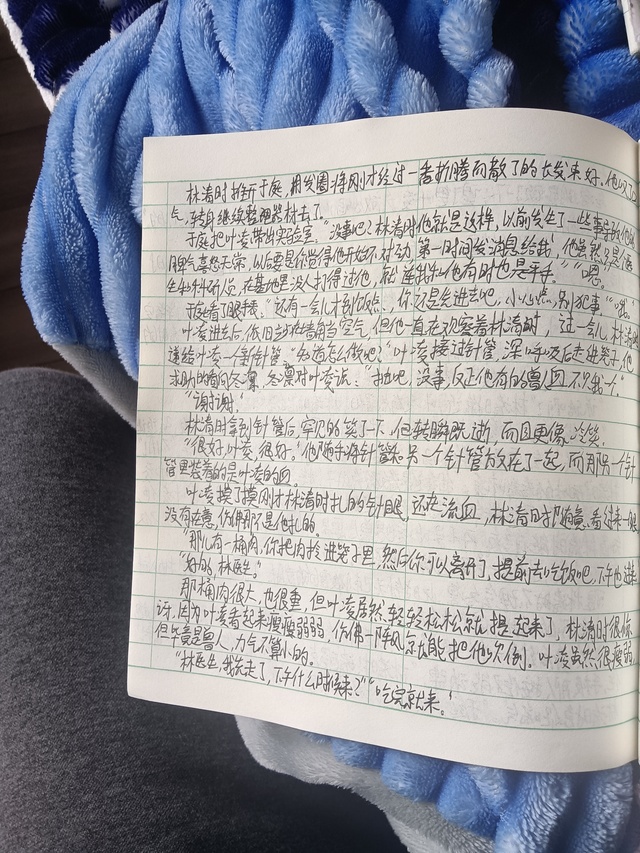 林清时推开于庭，用发圈将刚才经过一番折腾而散了的长发束好。他叹了口
气，转身继续整理器材去了。
于庭把叶凌带出实验室。“没事吧？林清时他就是这样，以前发生了一些事导致他
脾气喜怒无常，以后要是你觉得他开始不对劲，第一时间发消息给我，他虽然只是
生科研员，在基地里没人打得过他，就连我和他有时也是平手。”“嗯。”
于庭看了眼手表。“还有一会儿才到饭点，你先进去吧，小心点，别犯事。”“哦。”
叶凌进去后，依旧当在墙角当空气，但他一直在观察着林清时，过一会儿林清
递给叶凌一个新针管。“知道怎么做吧？”叶凌接过针管，深呼吸后走进笼子，他
求助地看向冬凛，冬凛对叶凌说：“抽吧，没事，反正他有的兽血不少我一个。”
“谢谢。”
林清时拿到针管后，罕见的笑了一下，但转瞬既逝，而且更像冷笑。
“很好，叶凌，很好。”他随手将针管和另一个针管放在了一起，而那另一个针
管里装着的是叶凌的血。
叶凌摸了摸刚才林清时扎的针眼，还在流血，林清时随意看过来一眼
没有在意，仿佛那不是他扎的。
“那儿有一桶肉，你把肉拎进笼子里，然后你可以离开了，提前去吃饭吧，下午他
“好的，林医生。”
那桶肉很大，也很重，但叶凌居然轻轻松松就提起来了，林清时很惊
讶，因为叶凌看起来瘦瘦弱弱，仿佛一阵风就能把他吹倒。叶凌虽然很瘦弱，
但毕竟是兽人，力气不算小的。
“林医生，我先走了，下午什么时候来？”“吃完就来。”